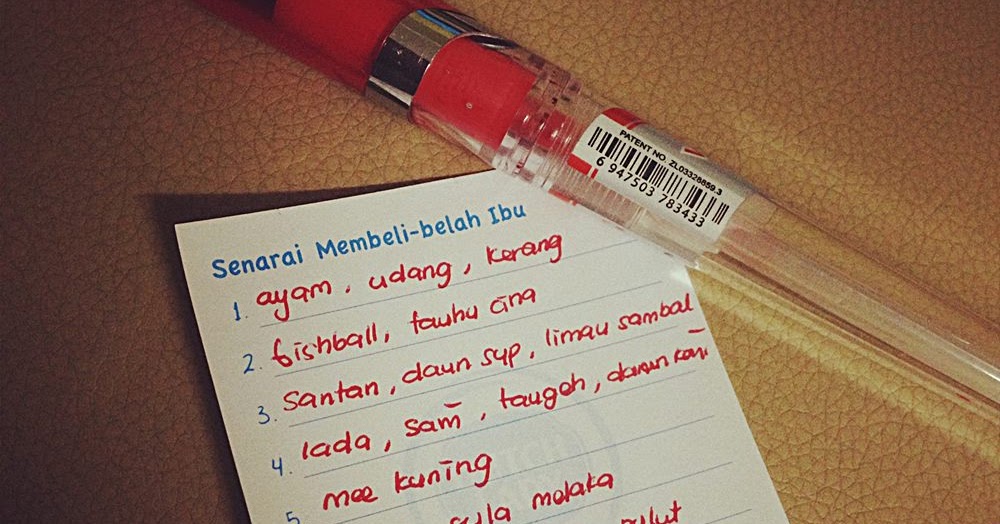 PATENT NO. ZL03328859.3
6 947503 783433
Senarai Membeli-belah Ibu
1. ayam, udang, kerang
2. fishball, tauhu cina
3. santan, daun sup, limau sambal
4. lada, sawi, taugeh, daun kari
5. mee kuning
gula melaka
pulut